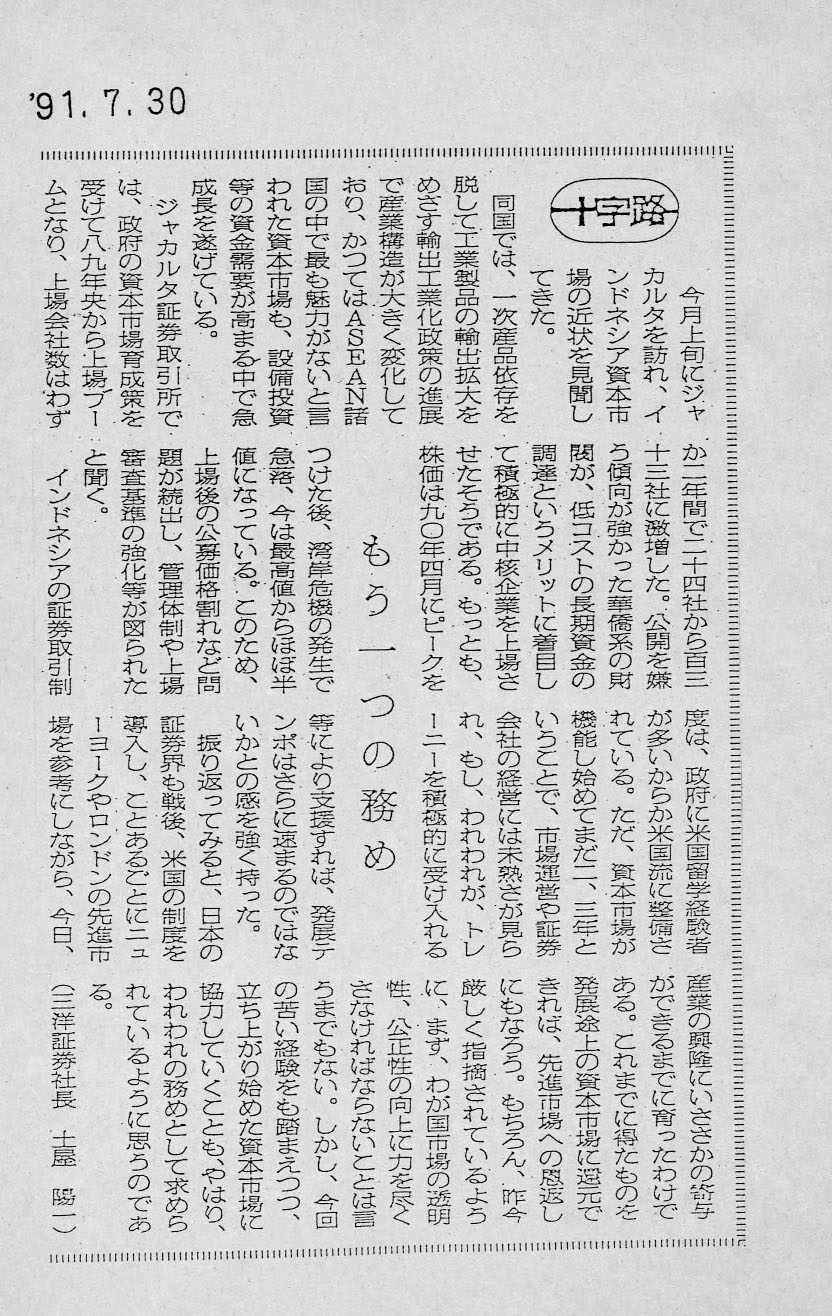 '91.7.30
十字路
もう一つの務め
今月上旬にジャ
カルタを訪れ、イ
ンドネシア資本市
場の近状を見聞し
てきた。
同国では、一次産品依存を
脱して工業製品の輸出拡大を
めざす輸出工業化政策の進展
で産業構造が大きく変化して
おり、かつてはASEAN諸
国の中で最も魅力がないと言
われた資本市場も、設備投資
等の資金需要が高まる中で急
成長を遂げている。
ジャカルタ証券取引所で
は、政府の資本市場育成策を
受けて八九年央から上場ブー
ムとなり、上場会社数はわず
か二年間で二十四社から百三
十三社に激増した。公開を嫌
う傾向が強かった華僑系の財
閥が、低コストの長期資金の
調達というメリットに着目し
て積極的に中核企業を上場さ
せたそうである。もっとも、
株価は九〇年四月にピークを
つけた後、湾岸危機の発生で
急落、今は最高値からほぼ半
値になっている。このため、
上場後の公募価格割れなど問
題が続出し、管理体制や上場
審査基準の強化等が図られた
と聞く。
インドネシアの証券取引制
度は、政府に米国留学経験者
が多いからか米国流に整備さ
れている。ただ、資本市場が
機能し始めてまだ二、三年と
いうことで、市場運営や証券
会社の経営には未熟さが見ら
れ、もし、われわれが、トレ
ーニーを積極的に受け入れる
等により支援すれば、発展テ
ンポはさらに速まるのではな
いかとの感を強く持った。
振り返ってみると、日本の
証券界も戦後、米国の制度を
導入し、ことあるごとにニュ
ーヨークやロンドンの先進市
場を参考にしながら、今日、
産業の興隆にいささかの寄与
ができるまでに育ったわけで
ある。これまでに得たものを
発展途上の資本市場に還元で
きれば、先進市場への恩返し
にもなろう。もちろん、昨今
厳しく指摘されているよう
に、まず、わが国市場の透明
性、公正性の向上に力を尽く
さなければならないことは言
うまでもない。しかし、今回
の苦い経験をも踏まえつつ、
立ち上がり始めた資本市場に
協力していくことも、やはり、
われわれの務めとして求めら
れているように思うのであ
る。
(三洋証券社長 土屋 陽一)